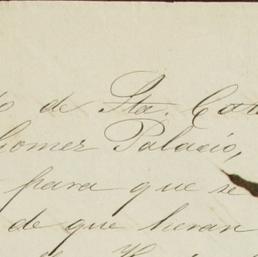 de Sta. Cata
Gomez Palacio,
para que se
de que heran